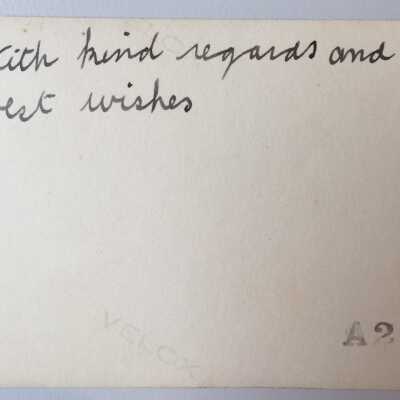 with kind regards and
best wishes
VELOX
A2